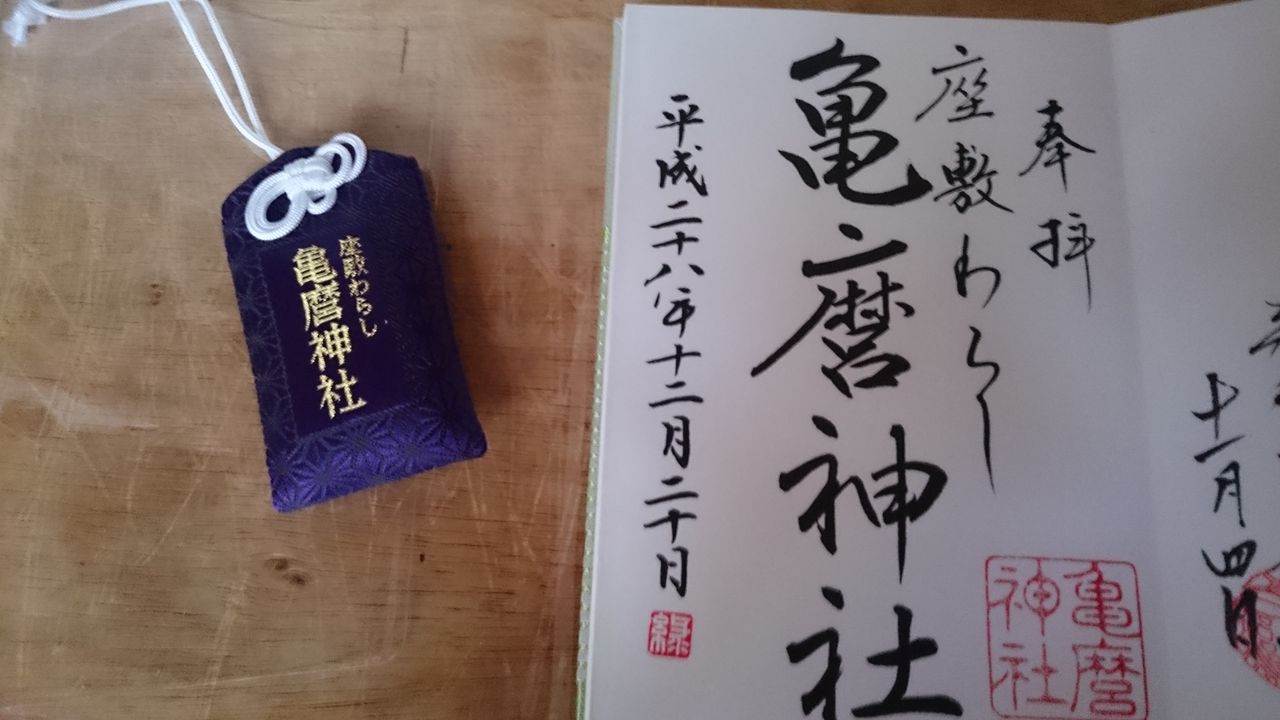 座敷わらし
亀麿神社
奉拝
座敷わらし
亀麿神社
平成二十八年十二月二十日
緑
亀麿
神社
十一月四日